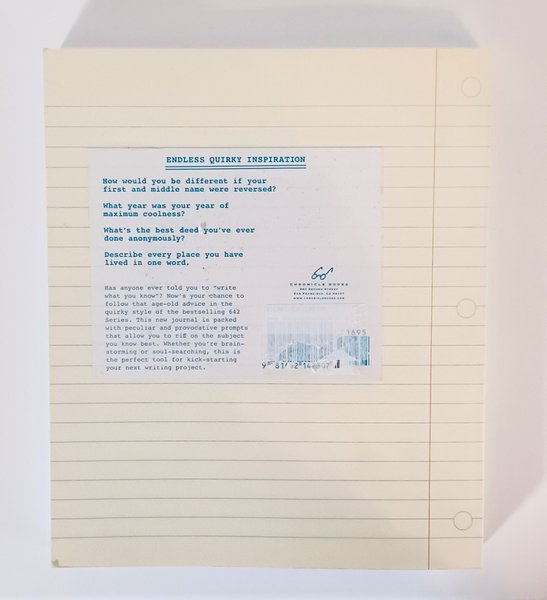 ENDLESS QUIRKY INSPIRATION
How would you be different if your
first and middle name were reversed?
What year was your year of
maximum coolness?
What's the best deed you've ever
done anonymously?
Describe every place you have
lived in one word.
Has anyone ever told you to "write
what you know"? Now's your chance to
follow that age-old advice in the
quirky style of the bestselling 642
Series. This new journal is packed
with peculiar and provocative prompts
that allow you to riff on the subject
you know best. Whether you're brain-
storming or soul-searching, this is
the perfect tool for kick-starting
your next writing project.
CHRONICLE BOOKS
680 SECOND STREET
SAN FRANCISCO, CA 94107
WWW.CHRONICLEBOOKS.COM
51695